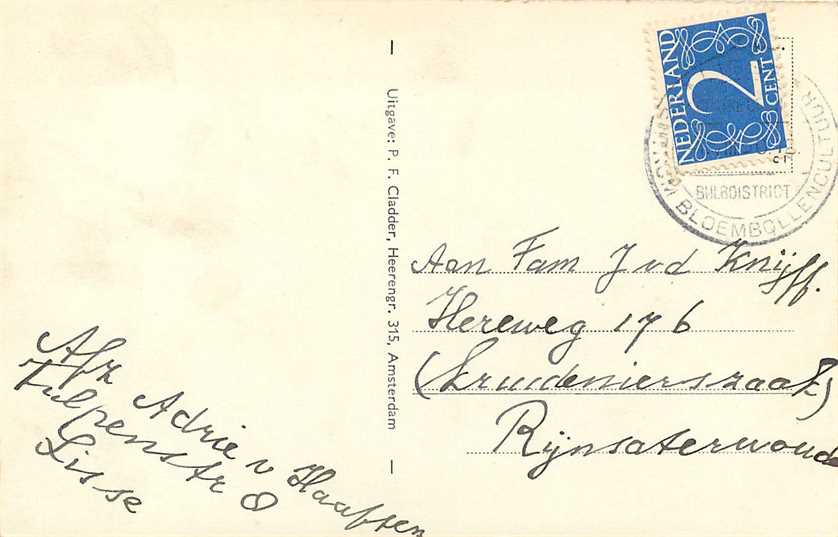 NEDERLAND
2
CENT
CENTRUM BLOEMBOLLENCULTUUR
BULBDISTRICT
Uitgave: P. F. Cladder, Heerengr. 315, Amsterdam
Aan Fam J vd Knijff.
Hereweg 176
(Kruidenierszaak)
Rijnsaterwoude
Afz Adrie v Haaften
Tulpenstr 8
Lisse